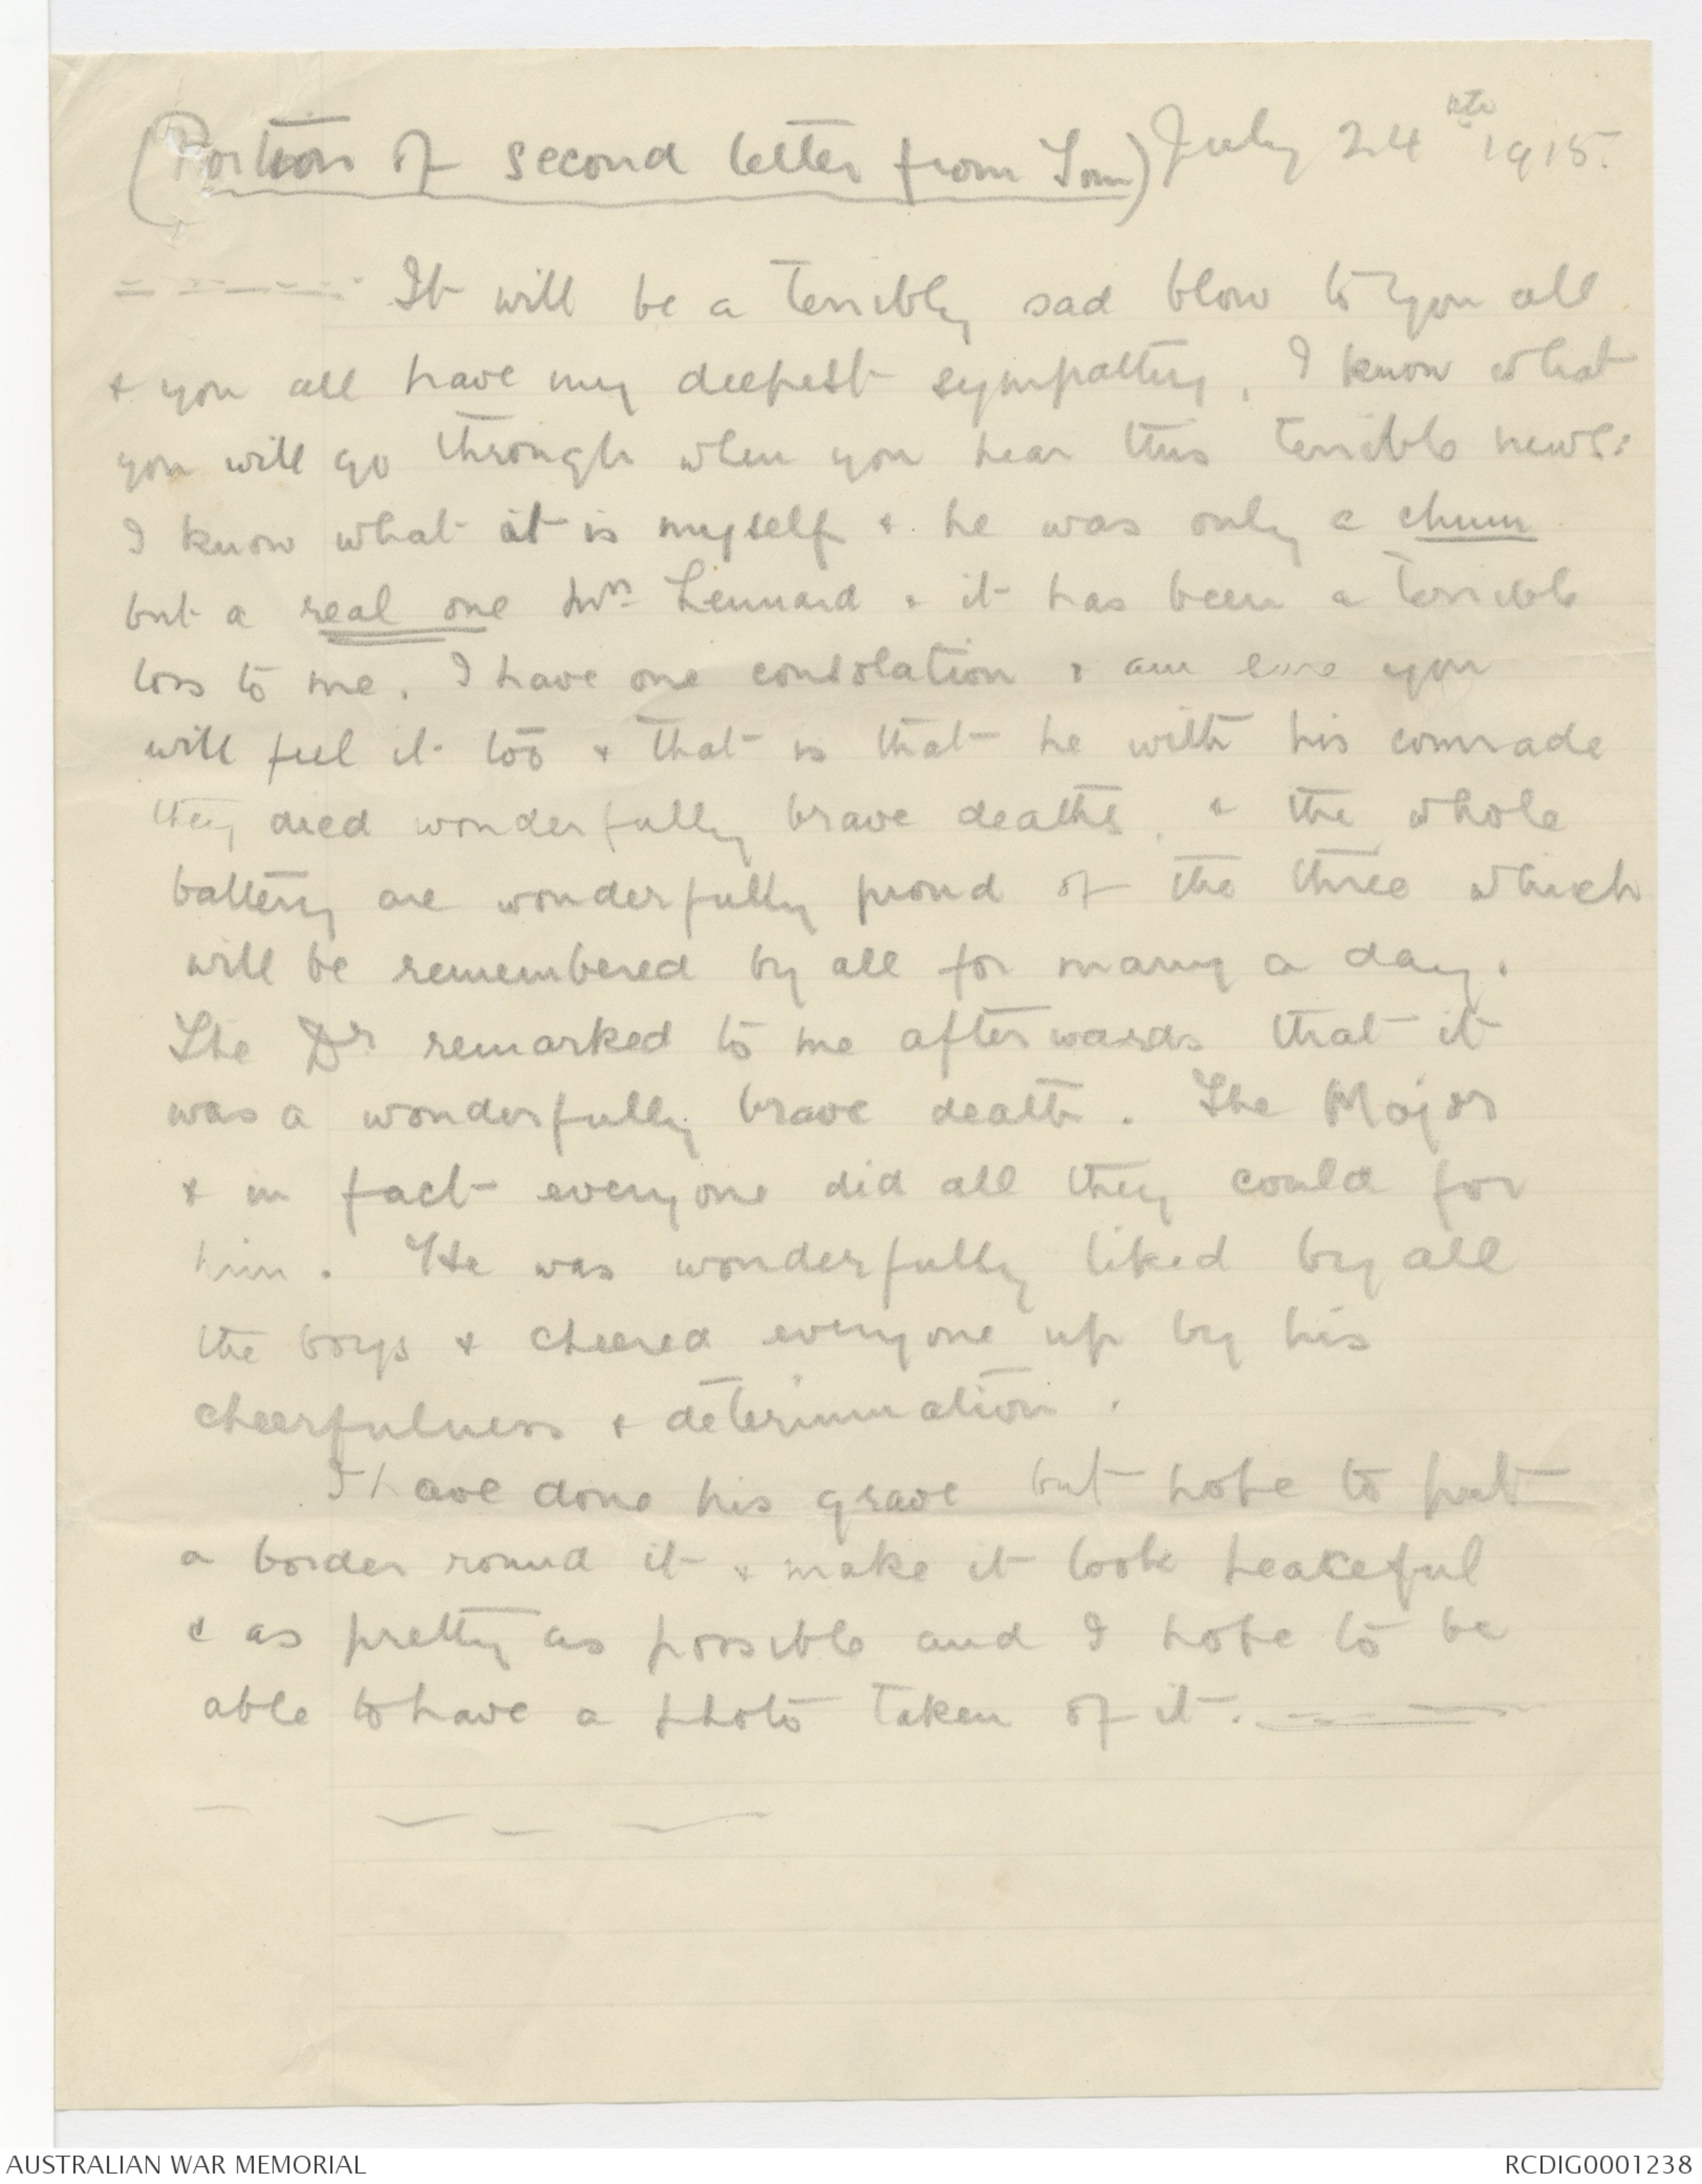 (Portion of second letter from Tom) July 24th 1915.
----- It will be a terribly sad blow to you all
& you all have my deepest sympathy, I know what
you will go through when you hear this terrible news:
I know what it is myself & he was only a chum
but a real one Mrs Lennard & it has been a terrible
loss to me. I have one consolation & am sure you
will feel it too & that is that he with his comrade
they died wonderfully brave deaths, & the whole
battery are wonderfully proud of the three which
will be remembered by all for many a day.
The Dr remarked to me afterwards that it
was a wonderfully brave death. The Major
& in fact everyone did all they could for
him. He was wonderfully liked by all
the boys & cheered everyone up by his
cheerfulness & determination.
I have done his grave but hope to put
a border round it & make it look peaceful
& as pretty as possible and I hope to be
able to have a photo taken of it. -----
AUSTRALIAN WAR MEMORIAL
RCDIG0001238